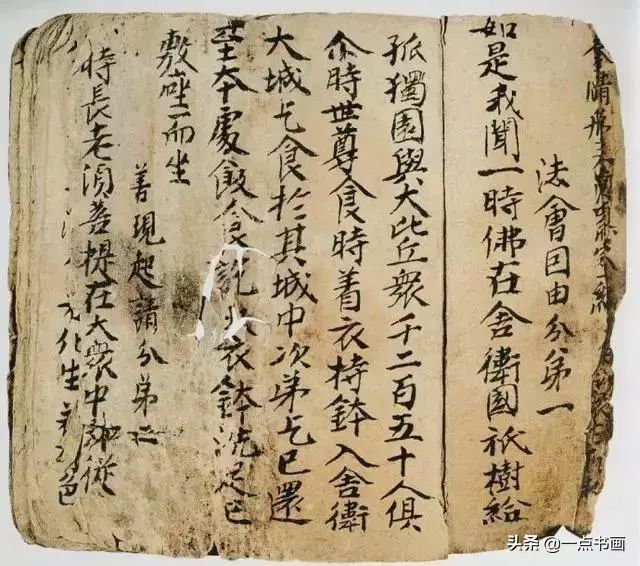 奉請
法會因由分第一
如是我聞一時佛在舍衛國祇樹給
孤獨園與大比丘衆千二百五十人俱
尒時世尊食時着衣持鉢入舍衛
大城乞食於其城中次第乞已還
至本處飯食訖衣鉢洗足已
敷座而坐
善現起請分第二
時長老須菩提在大衆中即從
化生色
头条 @一点书画